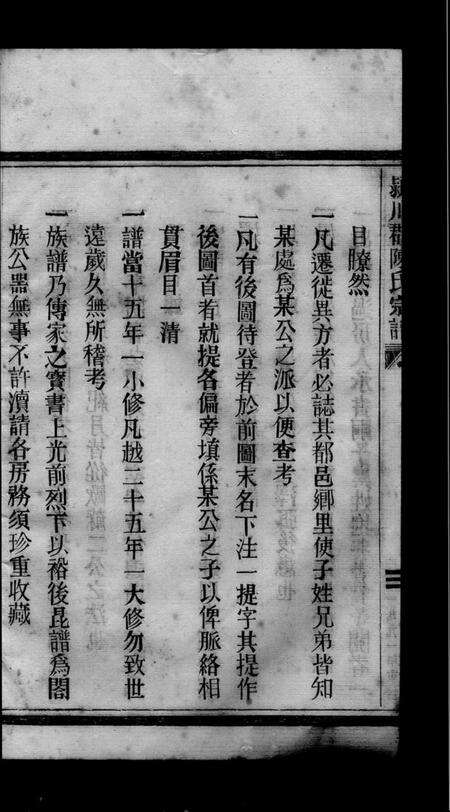 潁川郡陳氏宗譜
目瞭然
一凡遷徙異方者必誌其都邑鄉里使子姓兄弟皆知
某處為某公之派以便查考
一凡有後圖待登者於前圖末名下注一提字其提作
後圖首者就提各偏旁填係某公之子以俾脈絡相
貫眉目一清
一譜當十五年一小修凡越二十五年一大修勿致世
遠歲久無所稽考
一族譜乃傳家之寳書上光前烈下以裕後昆譜為闔
族公器無事不許瀆請各房務須珍重收藏